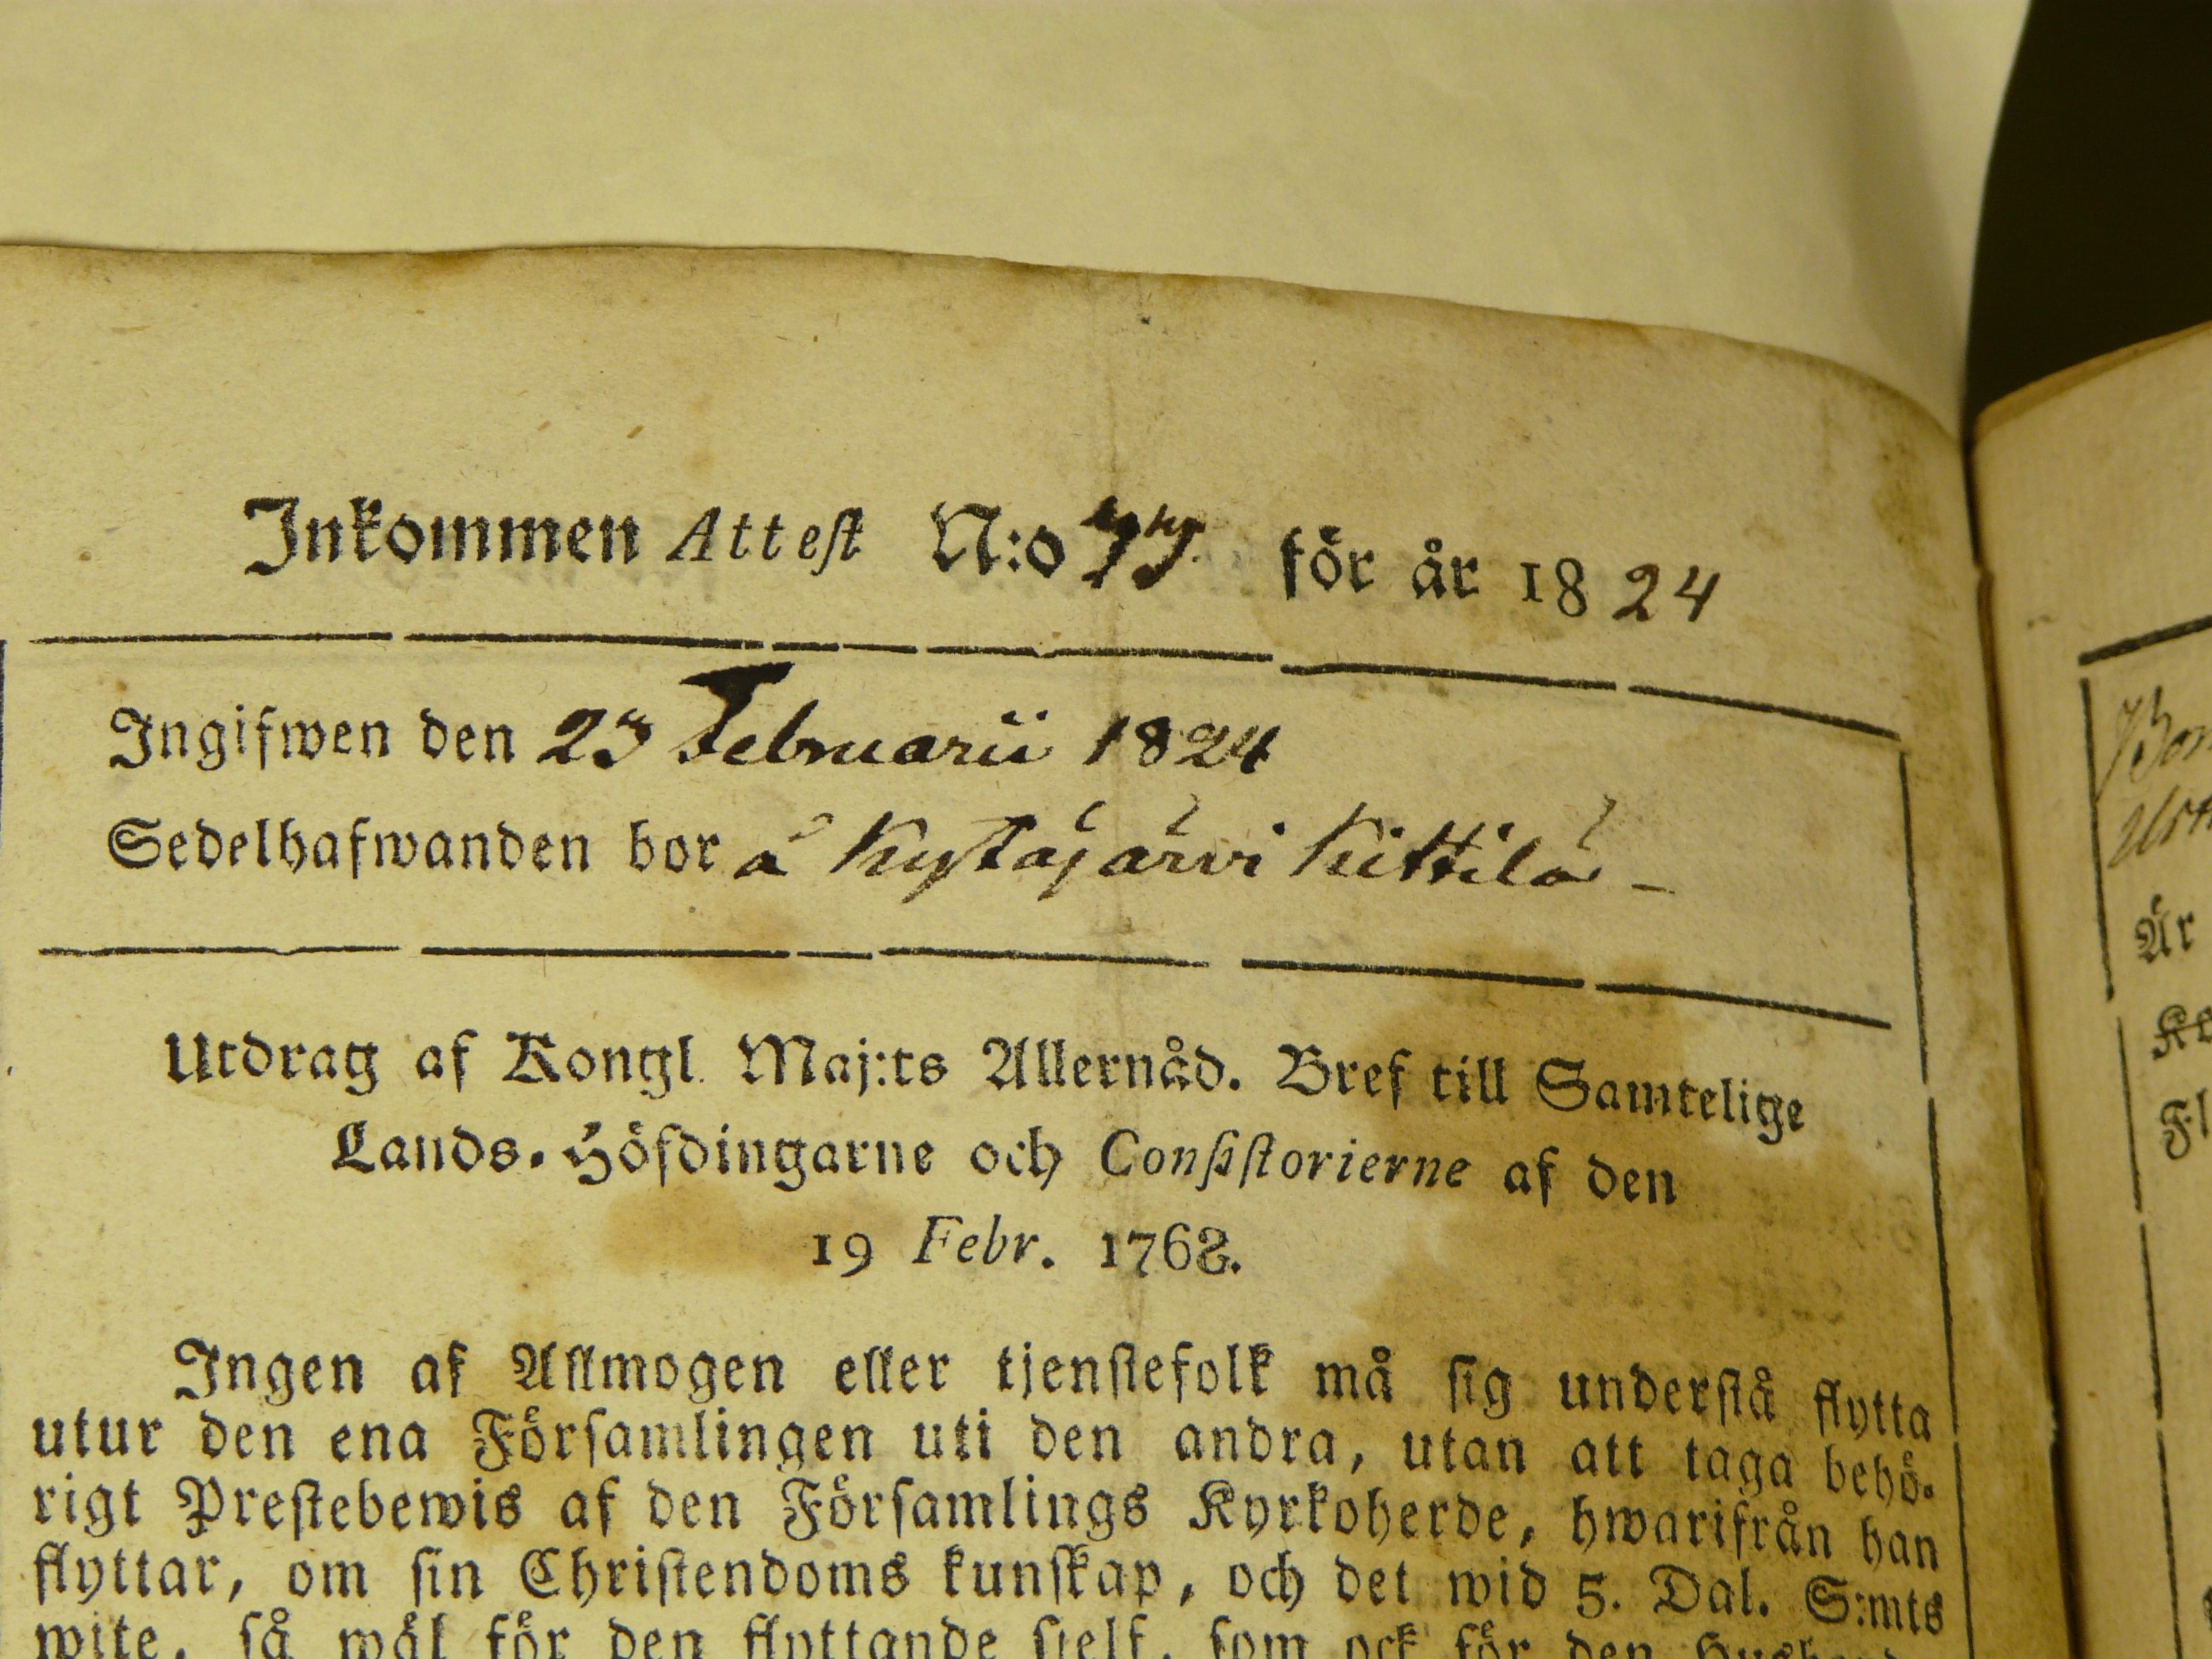 Inkommen Attest N:o 77. för år 1824
Ingifwen den 23 Februarii 1824
Sedelhafwanden bor å Kytäjärvi Kittilä –
Utdrag af Kongl. Maj:ts Allernåd. Bref till Samtelige
Lands-Höfdingarne och Consistorierne af den
19 Febr. 1768.
Ingen af Allmogen eller tjenstefolk må sig understå flytta
utur den ena Församlingen uti den andra, utan att taga behö-
rigt Prestebewis af den Församlings Kyrkoherde, hwarifrån han
flyttar, om sin Christendoms kunskap, och det wid 5. Dal. S:mts
wite, så wäl för den flyttande sjelf, som ock för den
Är
Fl